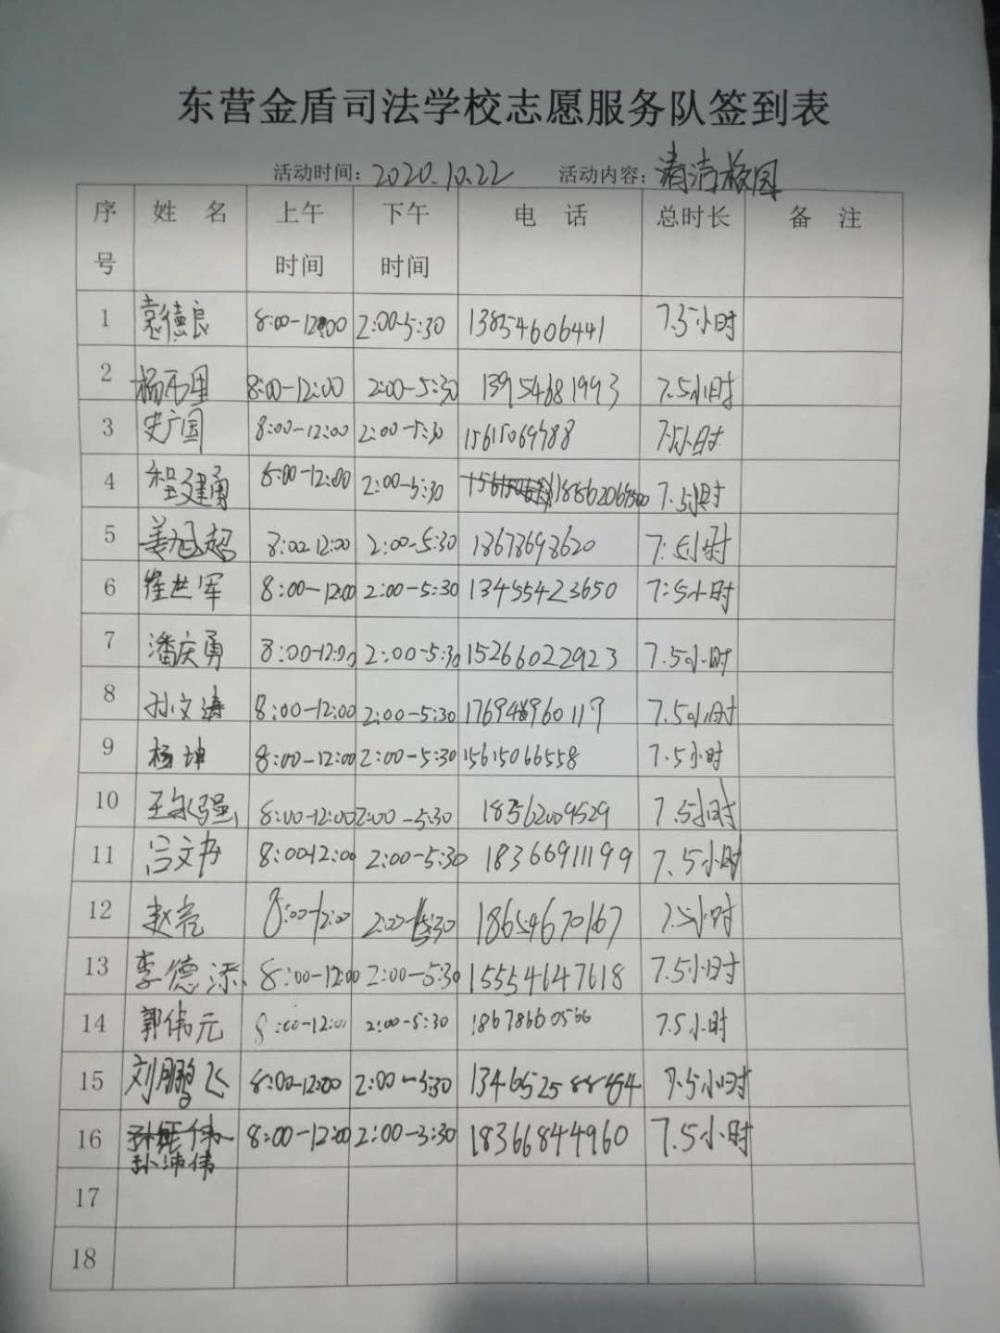 东营金盾司法学校志愿服务队签到表
活动时间: 2020.10.22 活动内容: 清洁校园
序号 姓名 上午时间 下午时间 电话 总时长 备注
1 袁德良 8:00-12:00 2:00-5:30 13854606441 7.5小时
2 8:00-12:00 2:00-5:30 13954681993 7.5小时
3 史广国 8:00-12:00 2:00-5:30 7.5小时
4 程建勇 8:00-12:00 2:00-5:30 7.5小时
5 姜旭超 8:00-12:00 2:00-5:30 18678698620 7:5小时
6 崔世军 8:00-12:00 2:00-5:30 13455423650 7:5小时
7 潘庆勇 8:00-12:00 2:00-5:30 15266022923 7.5小时
8 孙文涛 8:00-12:00 2:00-5:30 7.5小时
9 杨坤 8:00-12:00 2:00-5:30 15615066558 7.5小时
10 王永强 8:00-12:00 2:00-5:30 18562009529 7.5小时
11 8:00-12:00 2:00-5:30 18366911199 7.5小时
12 赵亮 8:00-12:00 2:00-5:30 18654670167 7.5小时
13 李德添 8:00-12:00 2:00-5:30 15554647618 7.5小时
14 郭伟元 8:00-12:00 2:00-5:30 18678660566 7.5小时
15 刘鹏飞 8:00-12:00 2:00-5:30 7.5小时
16 孙沛伟 8:00-12:00 2:00-3:30 18366844960 7.5小时
17
18